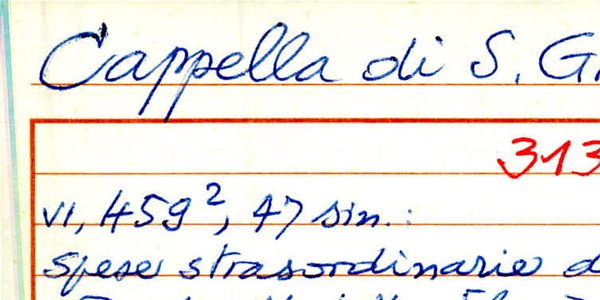 Cappella di S. G
313
VI, 459², 47 sin.:
spese straordinarie d